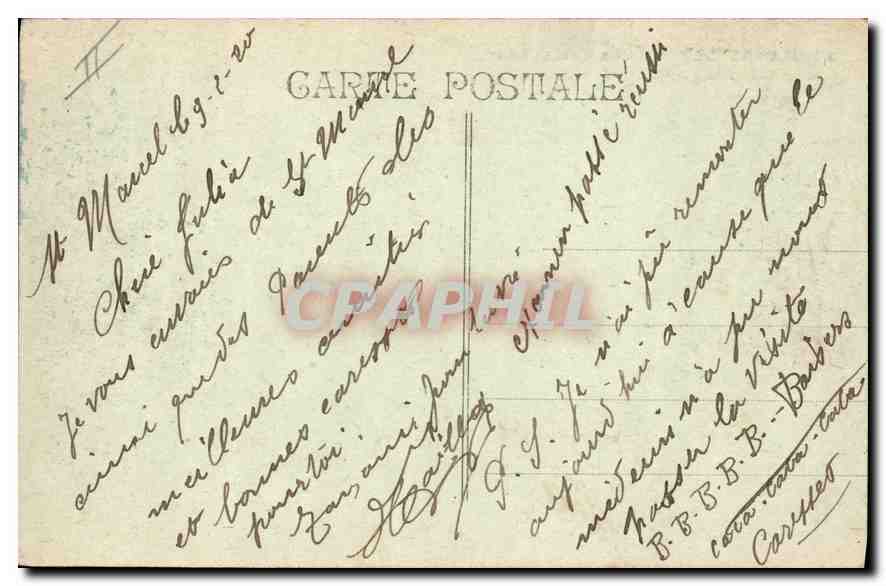 II
CARTE POSTALE
St Marcel le 9-2-20
Chère Julia
Je vous envoies de St Marcel
ainsi que des Parents des
meilleures amitiés
et bonnes caresses
pour toi.
ton ami pour la vie
Examen passé réussi
P.S. Je n'ai pû remonter
aujourd'hui a cause que le
médecin n'a pu nous
passer la visite
B.B.B.B.B. - Baisers
cata-cata-cata
Caresses
CPAPHIL